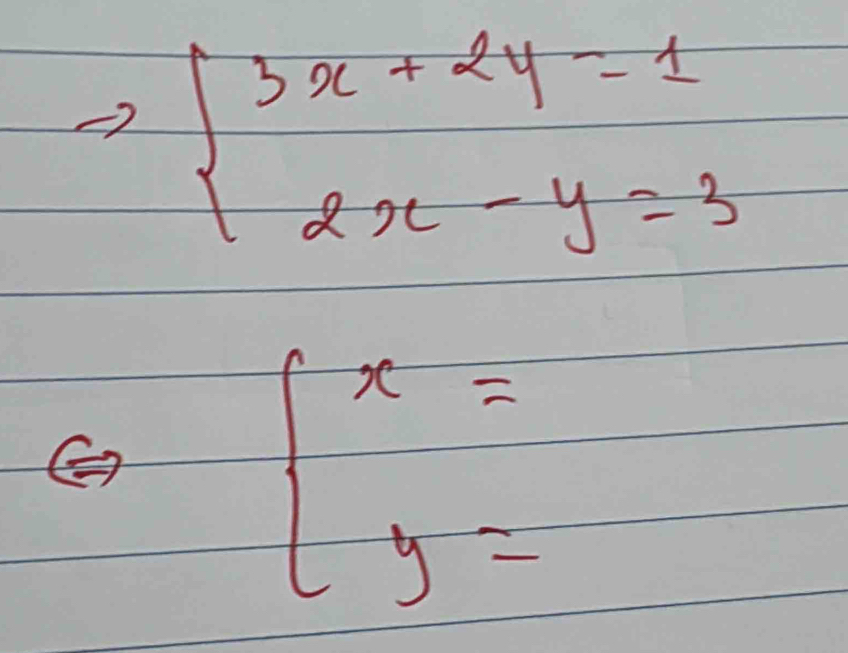 → { 3x + 2y = 1
2x - y = 3
⇔ { x =
y =